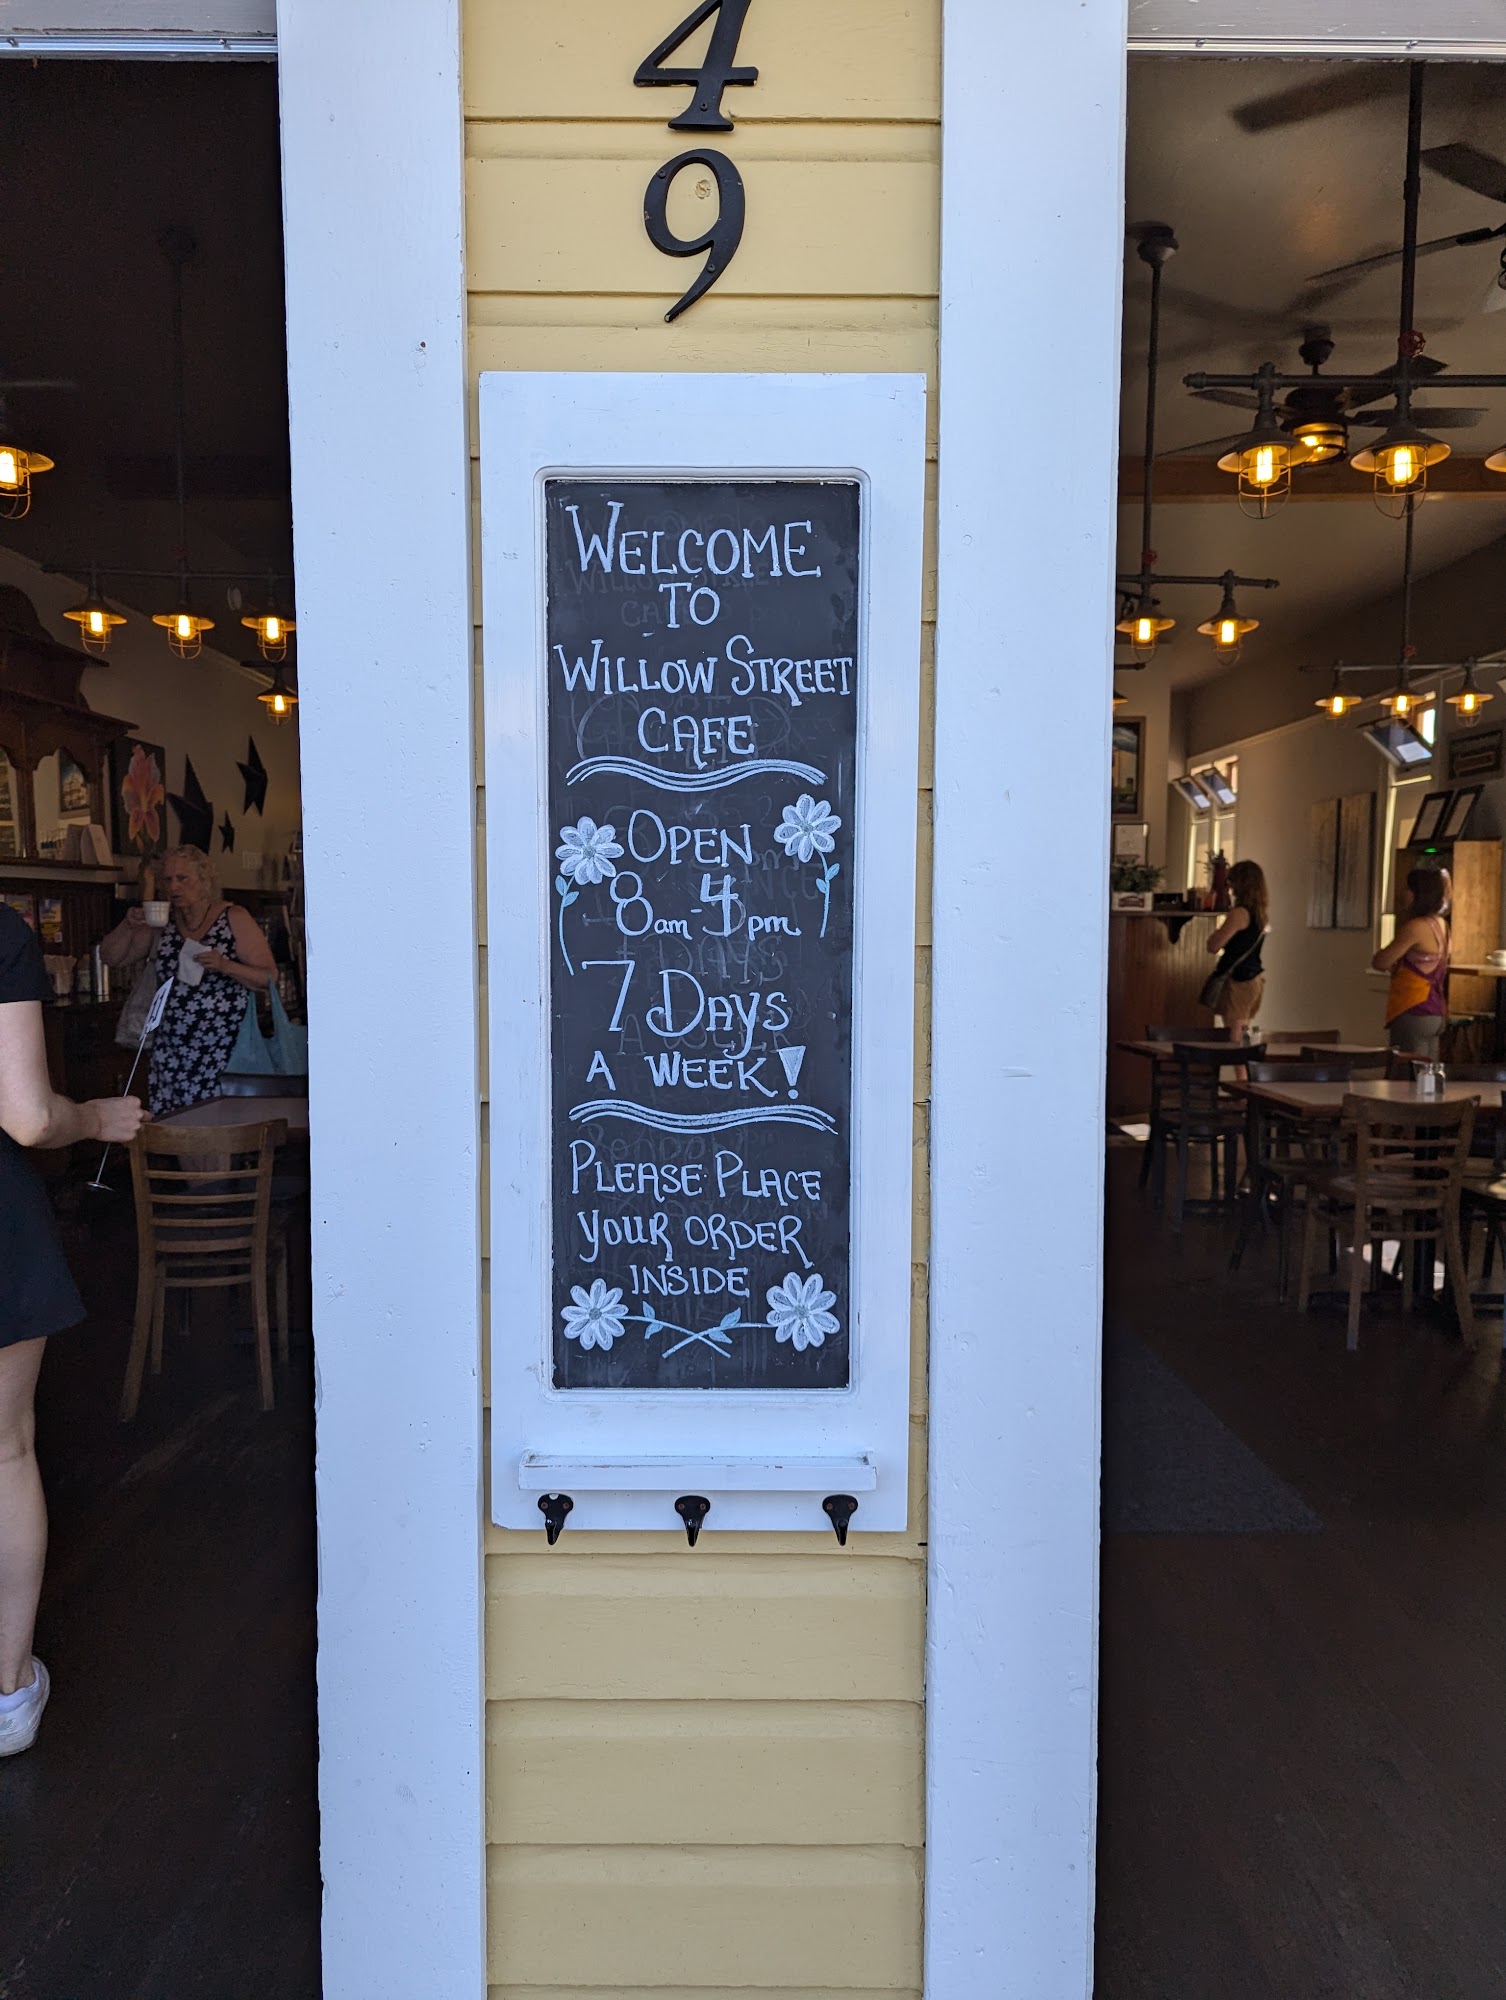 4
9
WELCOME
TO
WILLOW STREET
CAFE
OPEN
8am-4pm
7 DAYS
A WEEK!
PLEASE PLACE
YOUR ORDER
INSIDE